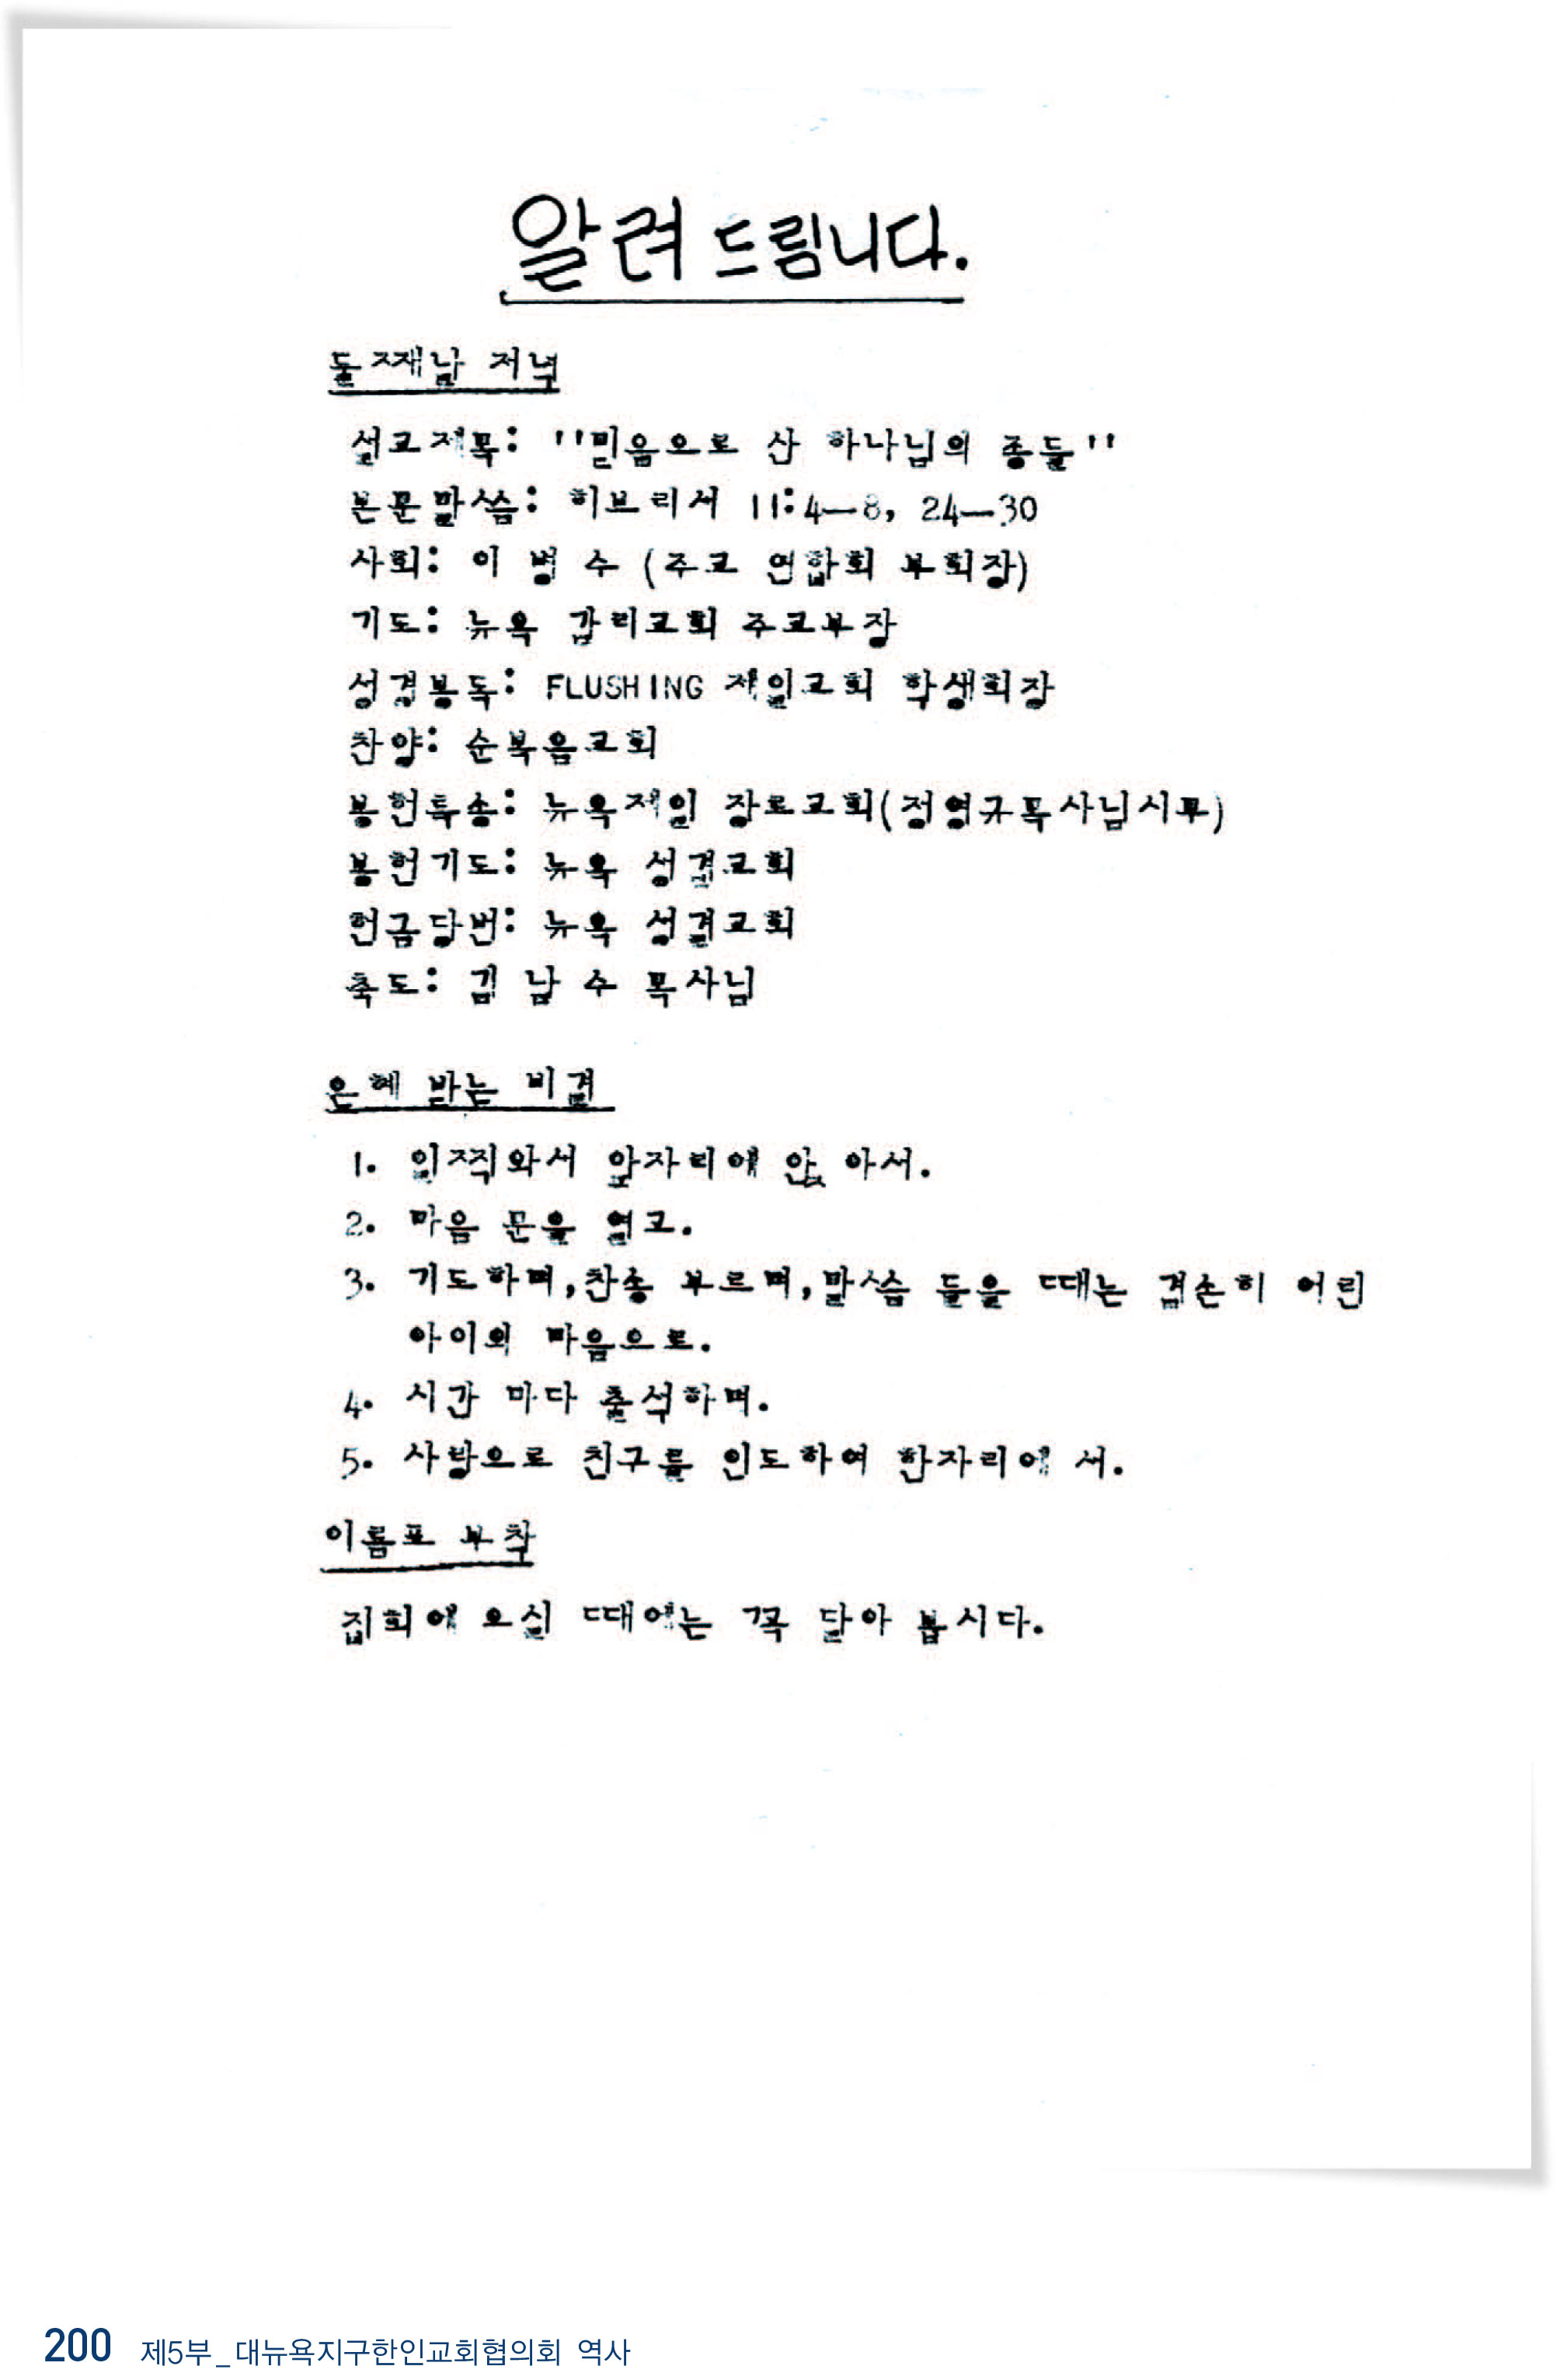 알려 드립니다.
둘째날 저녁
설교제목: "믿음으로 산 하나님의 종들"
본문말씀: 히브리서 11:4—8, 24—30
사회: 이 병 수 (주교 연합회 부회장)
기도: 뉴욕 감리교회 주교부장
성경봉독: FLUSHING 제일교회 학생회장
찬양: 순복음교회
봉헌특송: 뉴욕제일 장로교회(정영규목사님시무)
봉헌기도: 뉴욕 성결교회
헌금당번: 뉴욕 성결교회
축도: 김 남 수 목사님
은혜 받는 비결
1. 일찍와서 앞자리에 앉 아서.
2. 마음 문을 열고.
3. 기도하며,찬송 부르며,말씀 들을 때는 겸손히 어린
아이의 마음으로.
4. 시간 마다 출석하며.
5. 사랑으로 친구를 인도하여 한자리에 서.
이름표 부착
집회에 오실 때에는 꼭 달아 봅시다.
200 제5부_대뉴욕지구한인교회협의회 역사